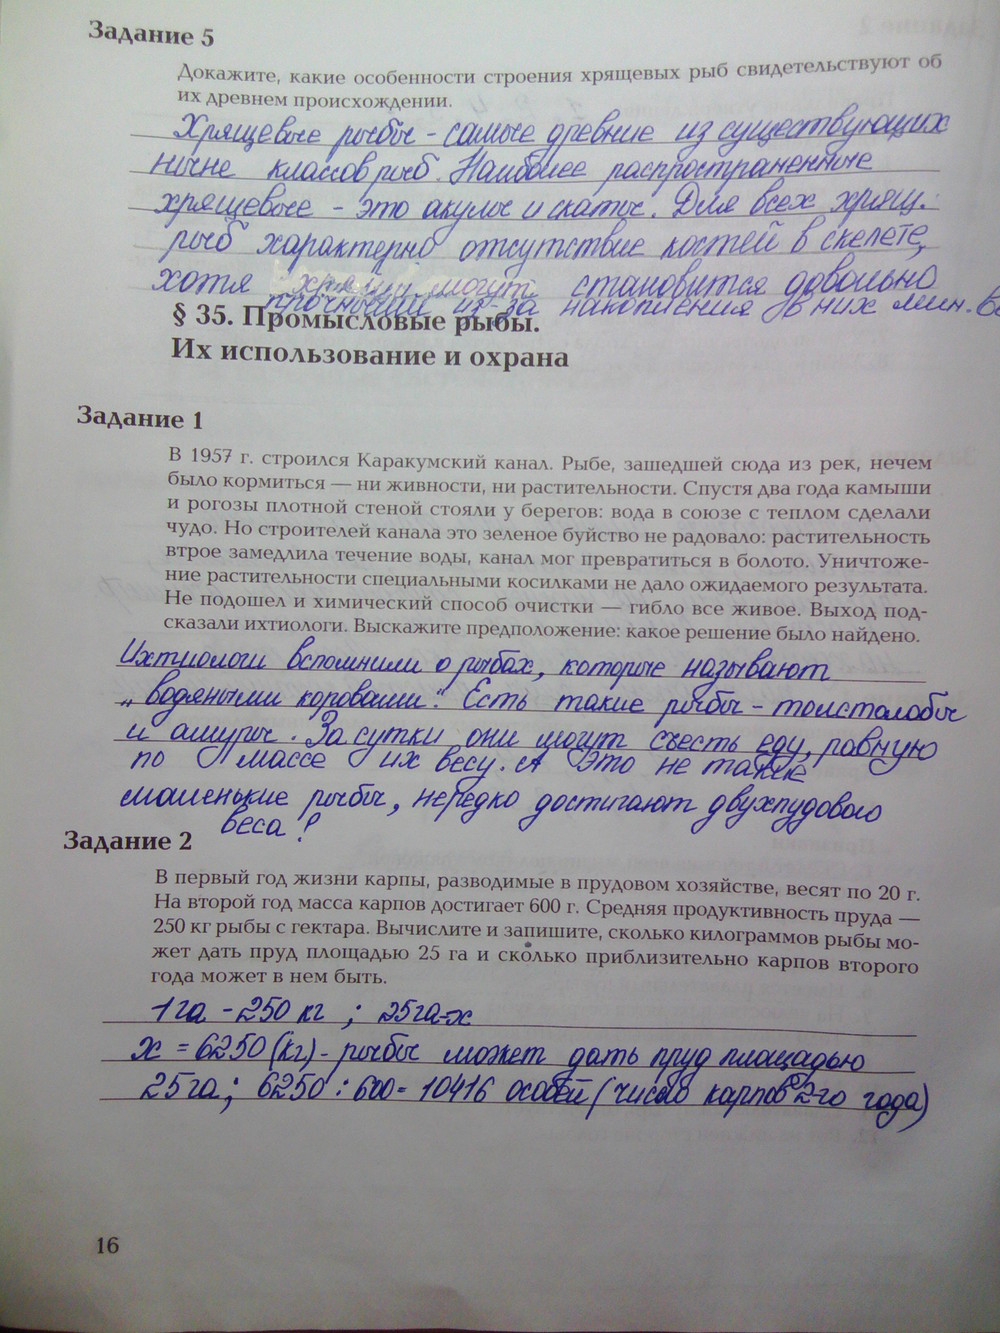 Задание 5
Докажите, какие особенности строения хрящевых рыб свидетельствуют об
их древнем происхождении.
Хрящевые рыбы - самые древние из существующих
ныне классов рыб. Наиболее распространенные
хрящевые - это акулы и скаты. Для всех хрящ.
рыб характерно отсутствие костей в скелете,
хотя хрящи могут становится довольно
прочными из-за накопления в них мин.
§ 35. Промысловые рыбы.
Их использование и охрана
Задание 1
В 1957 г. строился Каракумский канал. Рыбе, зашедшей сюда из рек, нечем
было кормиться — ни живности, ни растительности. Спустя два года камыши
и рогозы плотной стеной стояли у берегов: вода в союзе с теплом сделали
чудо. Но строителей канала это зеленое буйство не радовало: растительность
втрое замедлила течение воды, канал мог превратиться в болото. Уничтоже-
ние растительности специальными косилками не дало ожидаемого результата.
Не подошел и химический способ очистки — гибло все живое. Выход под-
сказали ихтиологи. Выскажите предположение: какое решение было найдено.
Ихтиологи вспомнили о рыбах, которые называют
„водяными коровами". Есть такие рыбы - толстолобы
и амуры. За сутки они могут съесть еду, равную
по массе их весу. А это не такие
маленькие рыбы, нередко достигают двухпудового
веса!
Задание 2
В первый год жизни карпы, разводимые в прудовом хозяйстве, весят по 20 г.
На второй год масса карпов достигает 600 г. Средняя продуктивность пруда —
250 кг рыбы с гектара. Вычислите и запишите, сколько килограммов рыбы мо-
жет дать пруд площадью 25 га и сколько приблизительно карпов второго
года может в нем быть.
1га - 250 кг ; 25га-х
х = 6250 (кг) - рыбы может дать пруд площадью
25га; 6250 : 600 = 10416 особей (число карпов 2-го года)
16